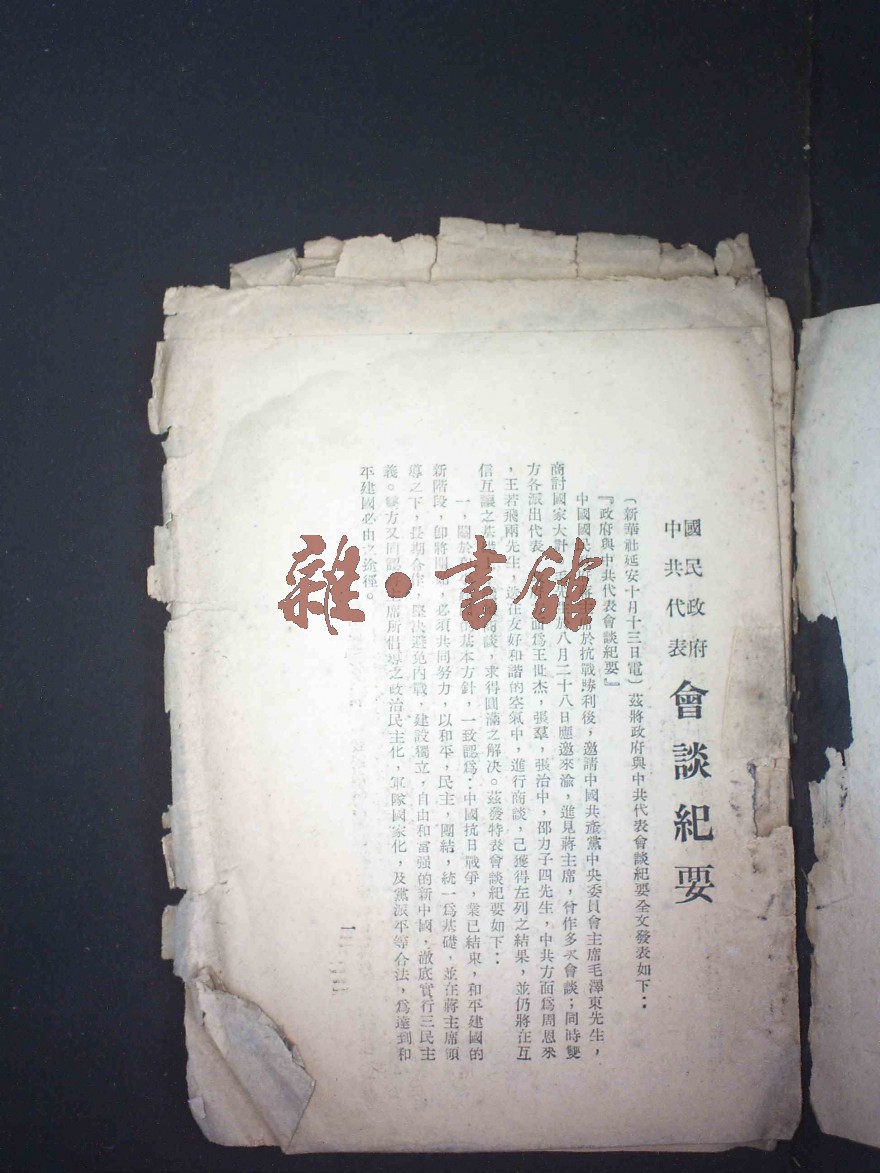 國民政府
中共代表
會談紀要
(新華社延安十月十三日電)茲將政府與中共代表會談紀要全文發表如下:
『政府與中共代表會談紀要』
中國國 席於抗戰勝利後,邀請中國共產黨中央委員會主席毛澤東先生,
商討國家大計 八月二十八日應邀來渝,進見蔣主席,曾作多次會談;同時雙
方各派出代表 面爲王世杰,張羣,張治中,邵力子四先生,中共方面爲周恩來
,王若飛兩先生, 友好和諧的空氣中,進行商談,己獲得左列之結果,並仍將在互
信互讓之基礎 商談,求得圓滿之解決。茲發特表會談紀要如下:
一,關於 基本方針,一致認爲:中國抗日戰爭,業已結束,和平建國的
新階段,即將開始,必須共同努力,以和平,民主,團結,統一爲基礎,並在蔣主席領
導之下,長期合作,堅決避免內戰,建設獨立,自由和富强的新中國,澈底實行三民主
義。雙方又同認 席所倡導之政治民主化,軍隊國家化,及黨派平等合法,爲達到和
平建國必由之途徑。
一
雜•書館